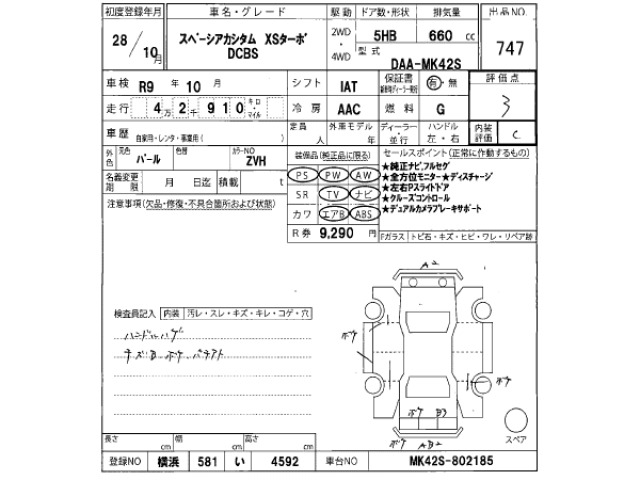 初度登録年月 車名・グレード 駆動 ドア数・形状 排気量 出品NO.
28/10月 スペーシアカシタム XSターボ DCBS 2WD・4WD 5HB 660cc 747
型式 DAA-MK42S
車検 R9年10月 シフト IAT 保証書 有・無 評価点 3
走行 4万2千910キロ・マイル 冷房 AAC 燃料 G
車歴 自家用・レンタ・事業用( ) 定員 人 外車モデル 年 ディーラー・並行 ハンドル 左・右 内装評価 C
外色 元色 パール 色替 カラーNO ZVH 装備品(純正品に限る) セールスポイント(正常に作動するもの)
名義変更期限 月 日迄 積載 t PS PW AW ★純正ナビ,フルセグ
★全方位モニター★ディスチャージ
SR TV ナビ ★左右Pスライドドア
★クルーズコントロール
注意事項(欠品・修復・不具合箇所および状態) カワ エアB ABS ★デュアルカメラブレーキサポート
R券 9,290円 Fガラス トビ石・キズ・ヒビ・ワレ・リペア跡
A2
検査員記入 内装 汚レ・スレ・キズ・キレ・コゲ・穴
ハンドルハゲ
キズB ボケ
ボケ ボケ
ボケ B3
ボケ AB2
スペア
長さ cm 幅 cm 高さ cm
登録NO 横浜 581 い 4592 車台NO MK42S-802185